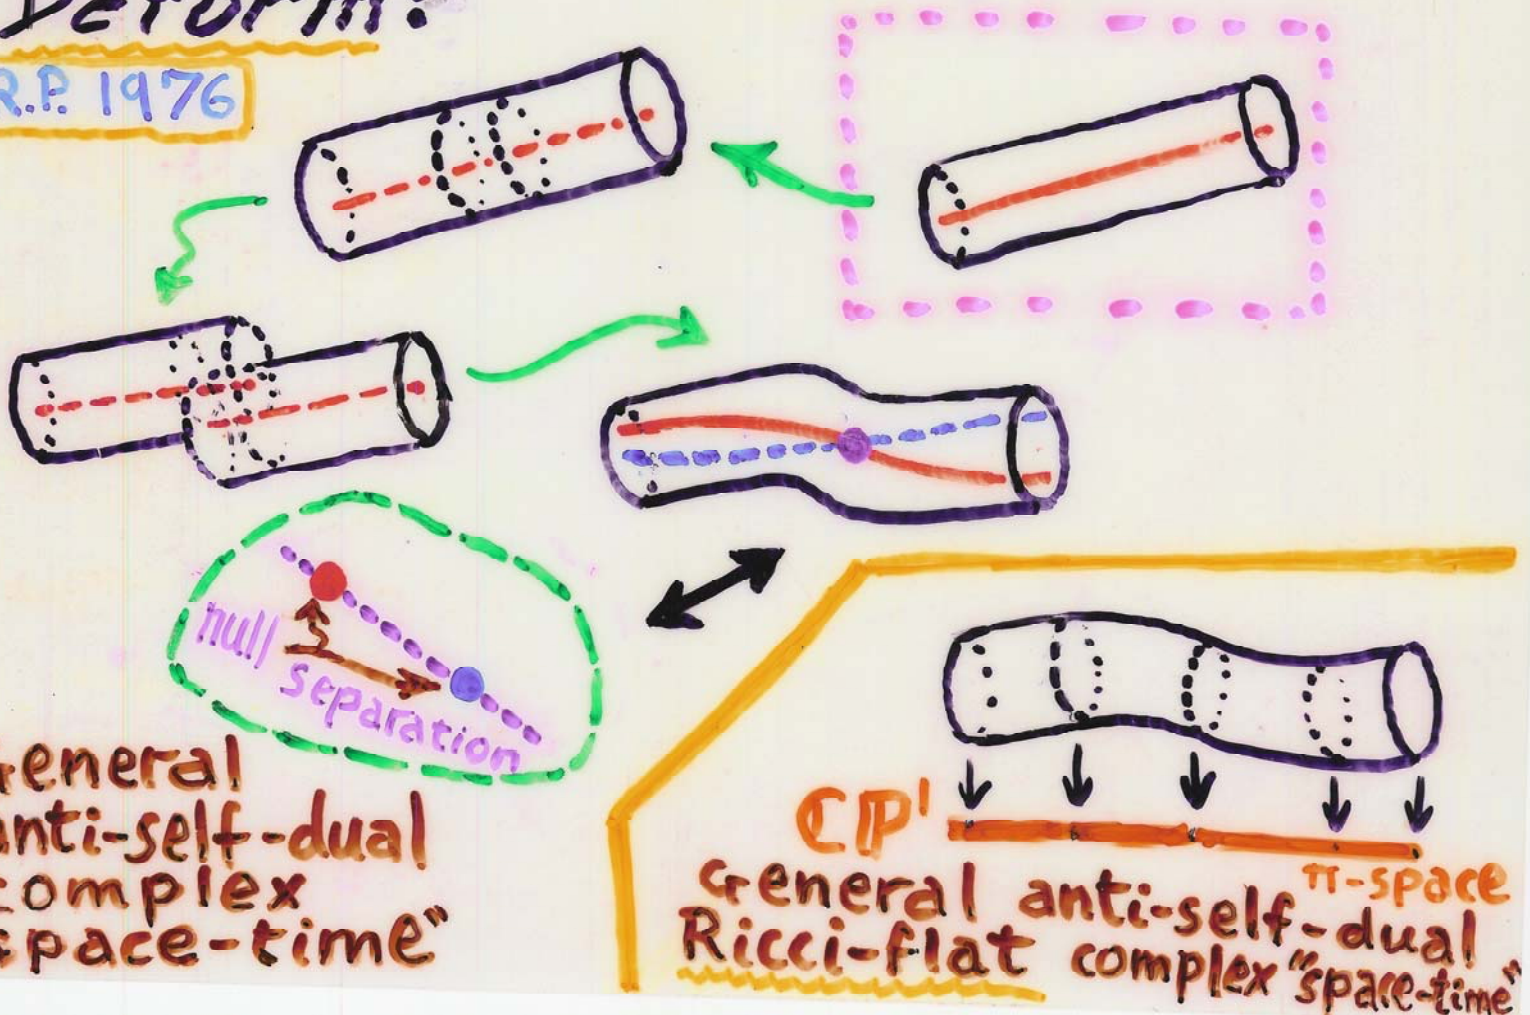 Deform!
R.P. 1976
null
separation
General
anti-self-dual
complex
space-time"
CP¹
π-space
General anti-self-dual
Ricci-flat complex "space-time"